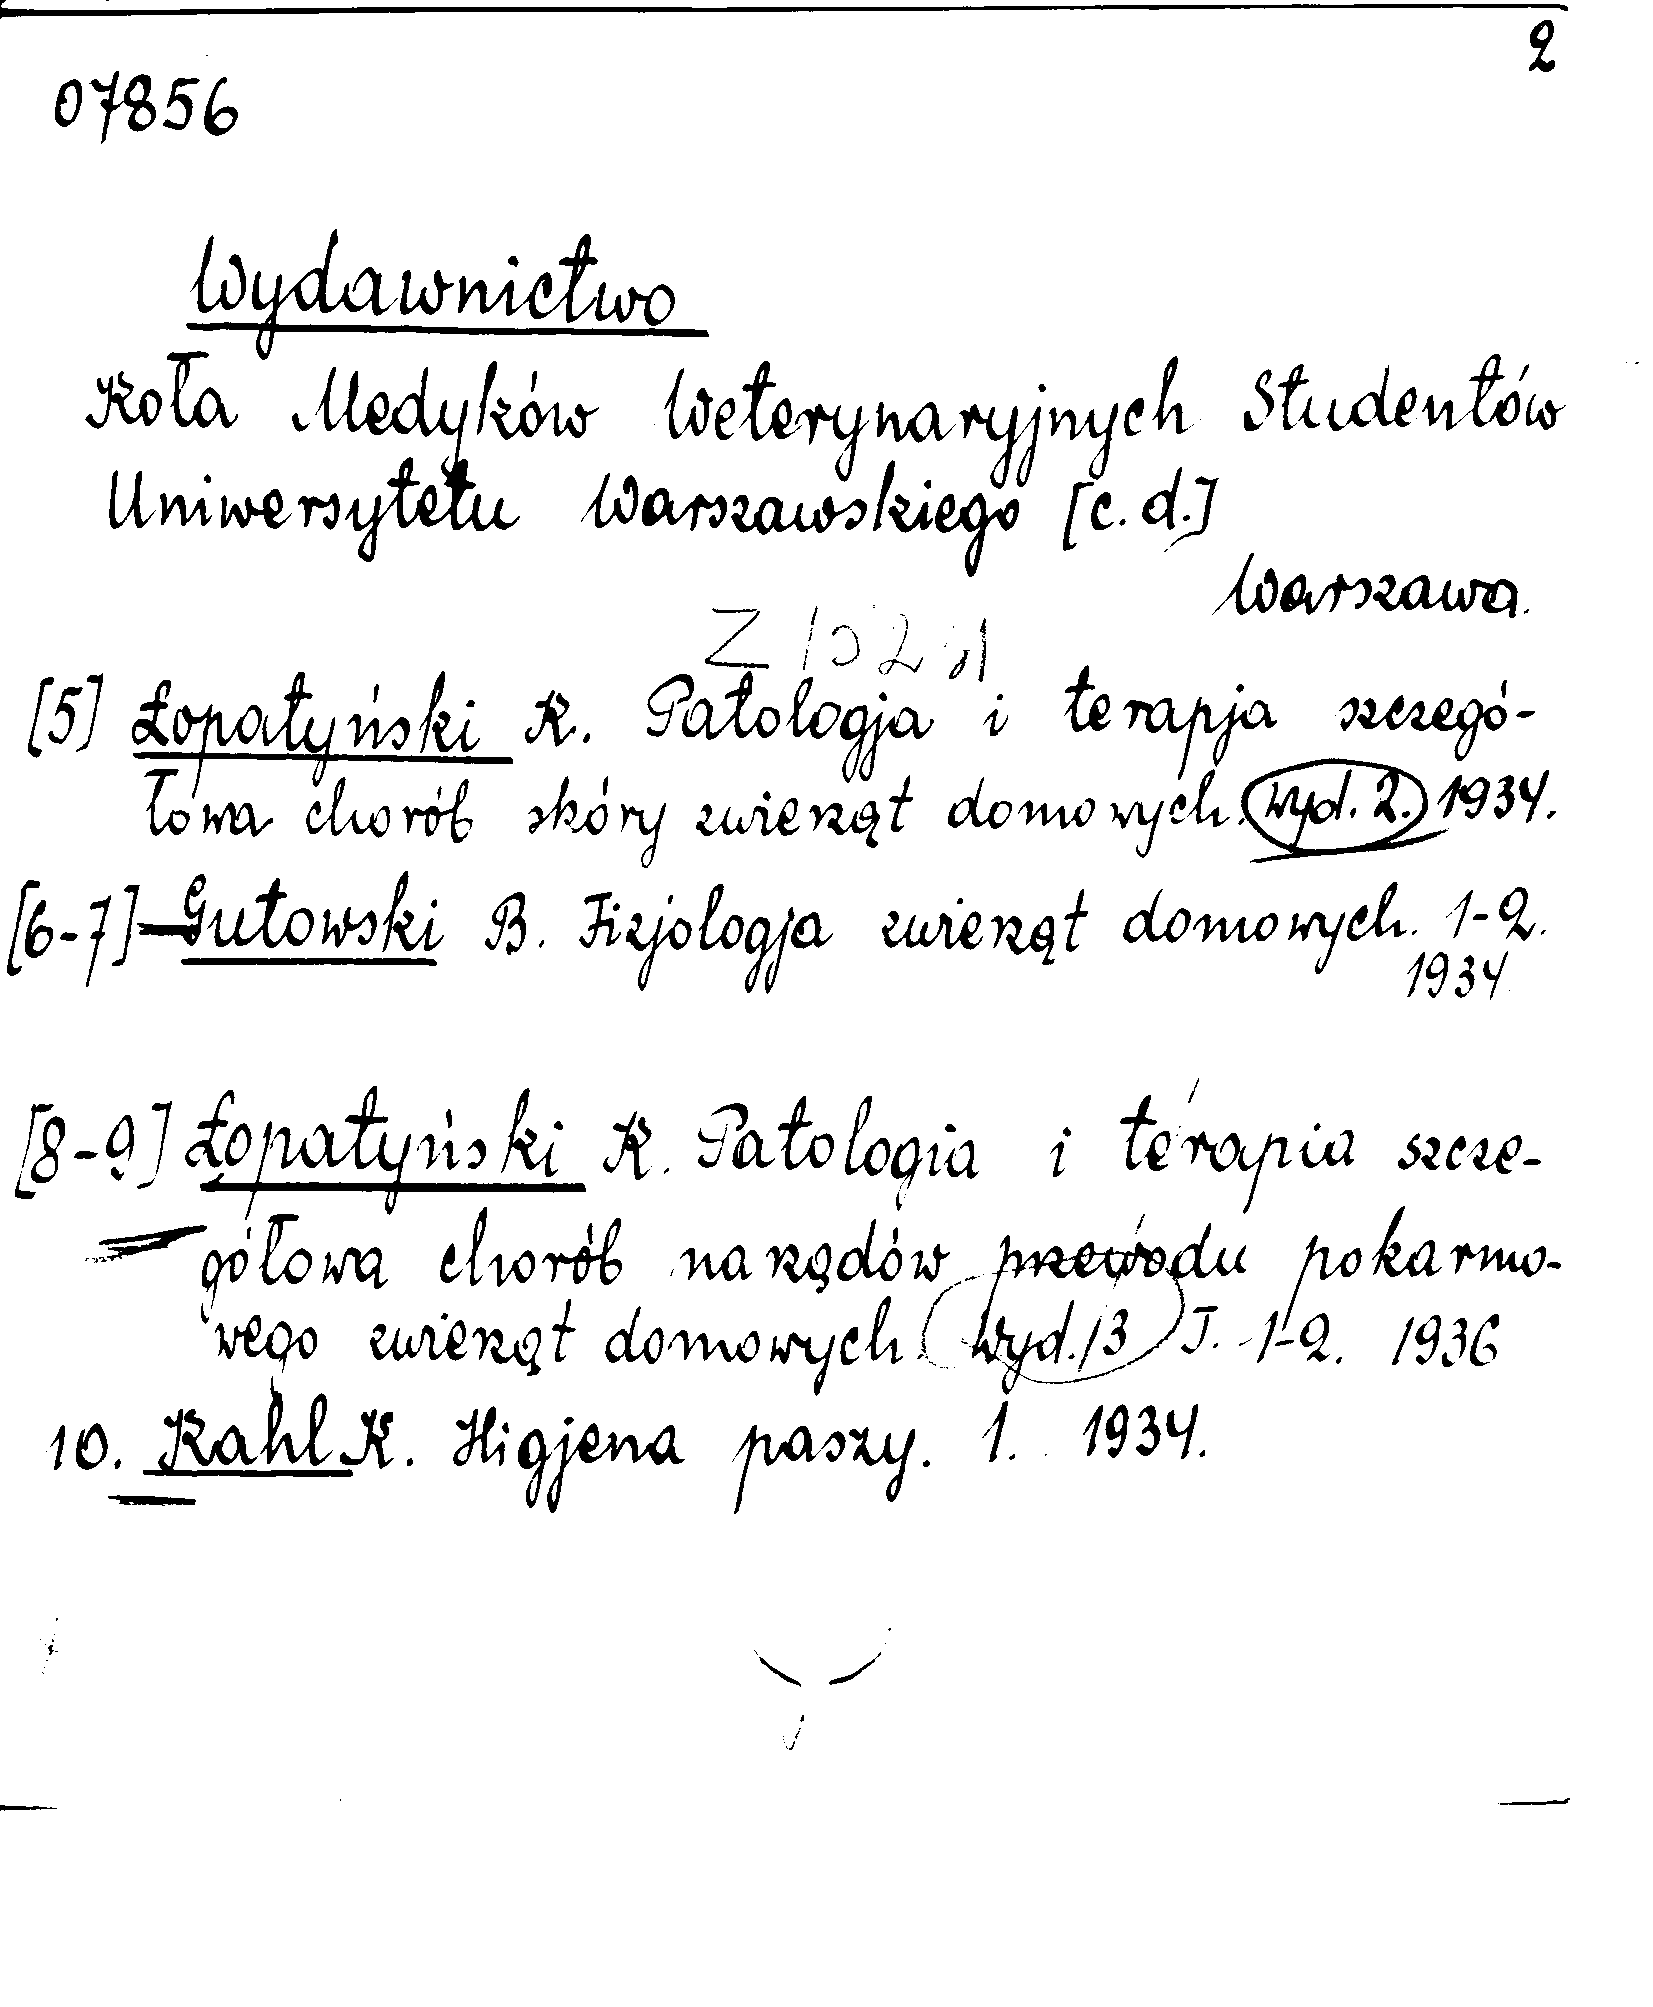 2
07856
Wydawnictwo
Koła Medyków Weterynaryjnych Studentów
Uniwersytetu Warszawskiego [c.d.]
Warszawa.
[5] Łopatyński K. Patologja i terapja szczegó-
łowa chorób skóry zwierząt domowych. wyd. 2. 1934.
[6-7] Gutowski B. Fizjologja zwierząt domowych. 1-2.
1934
[8-9] Łopatyński K. Patologia i terapia szcze-
gółowa chorób narzędów przewodu pokarmo-
wego zwierząt domowych. wyd. 3 T. 1-2. 1936
10. Kahl K. Higjena paszy. 1. 1934.